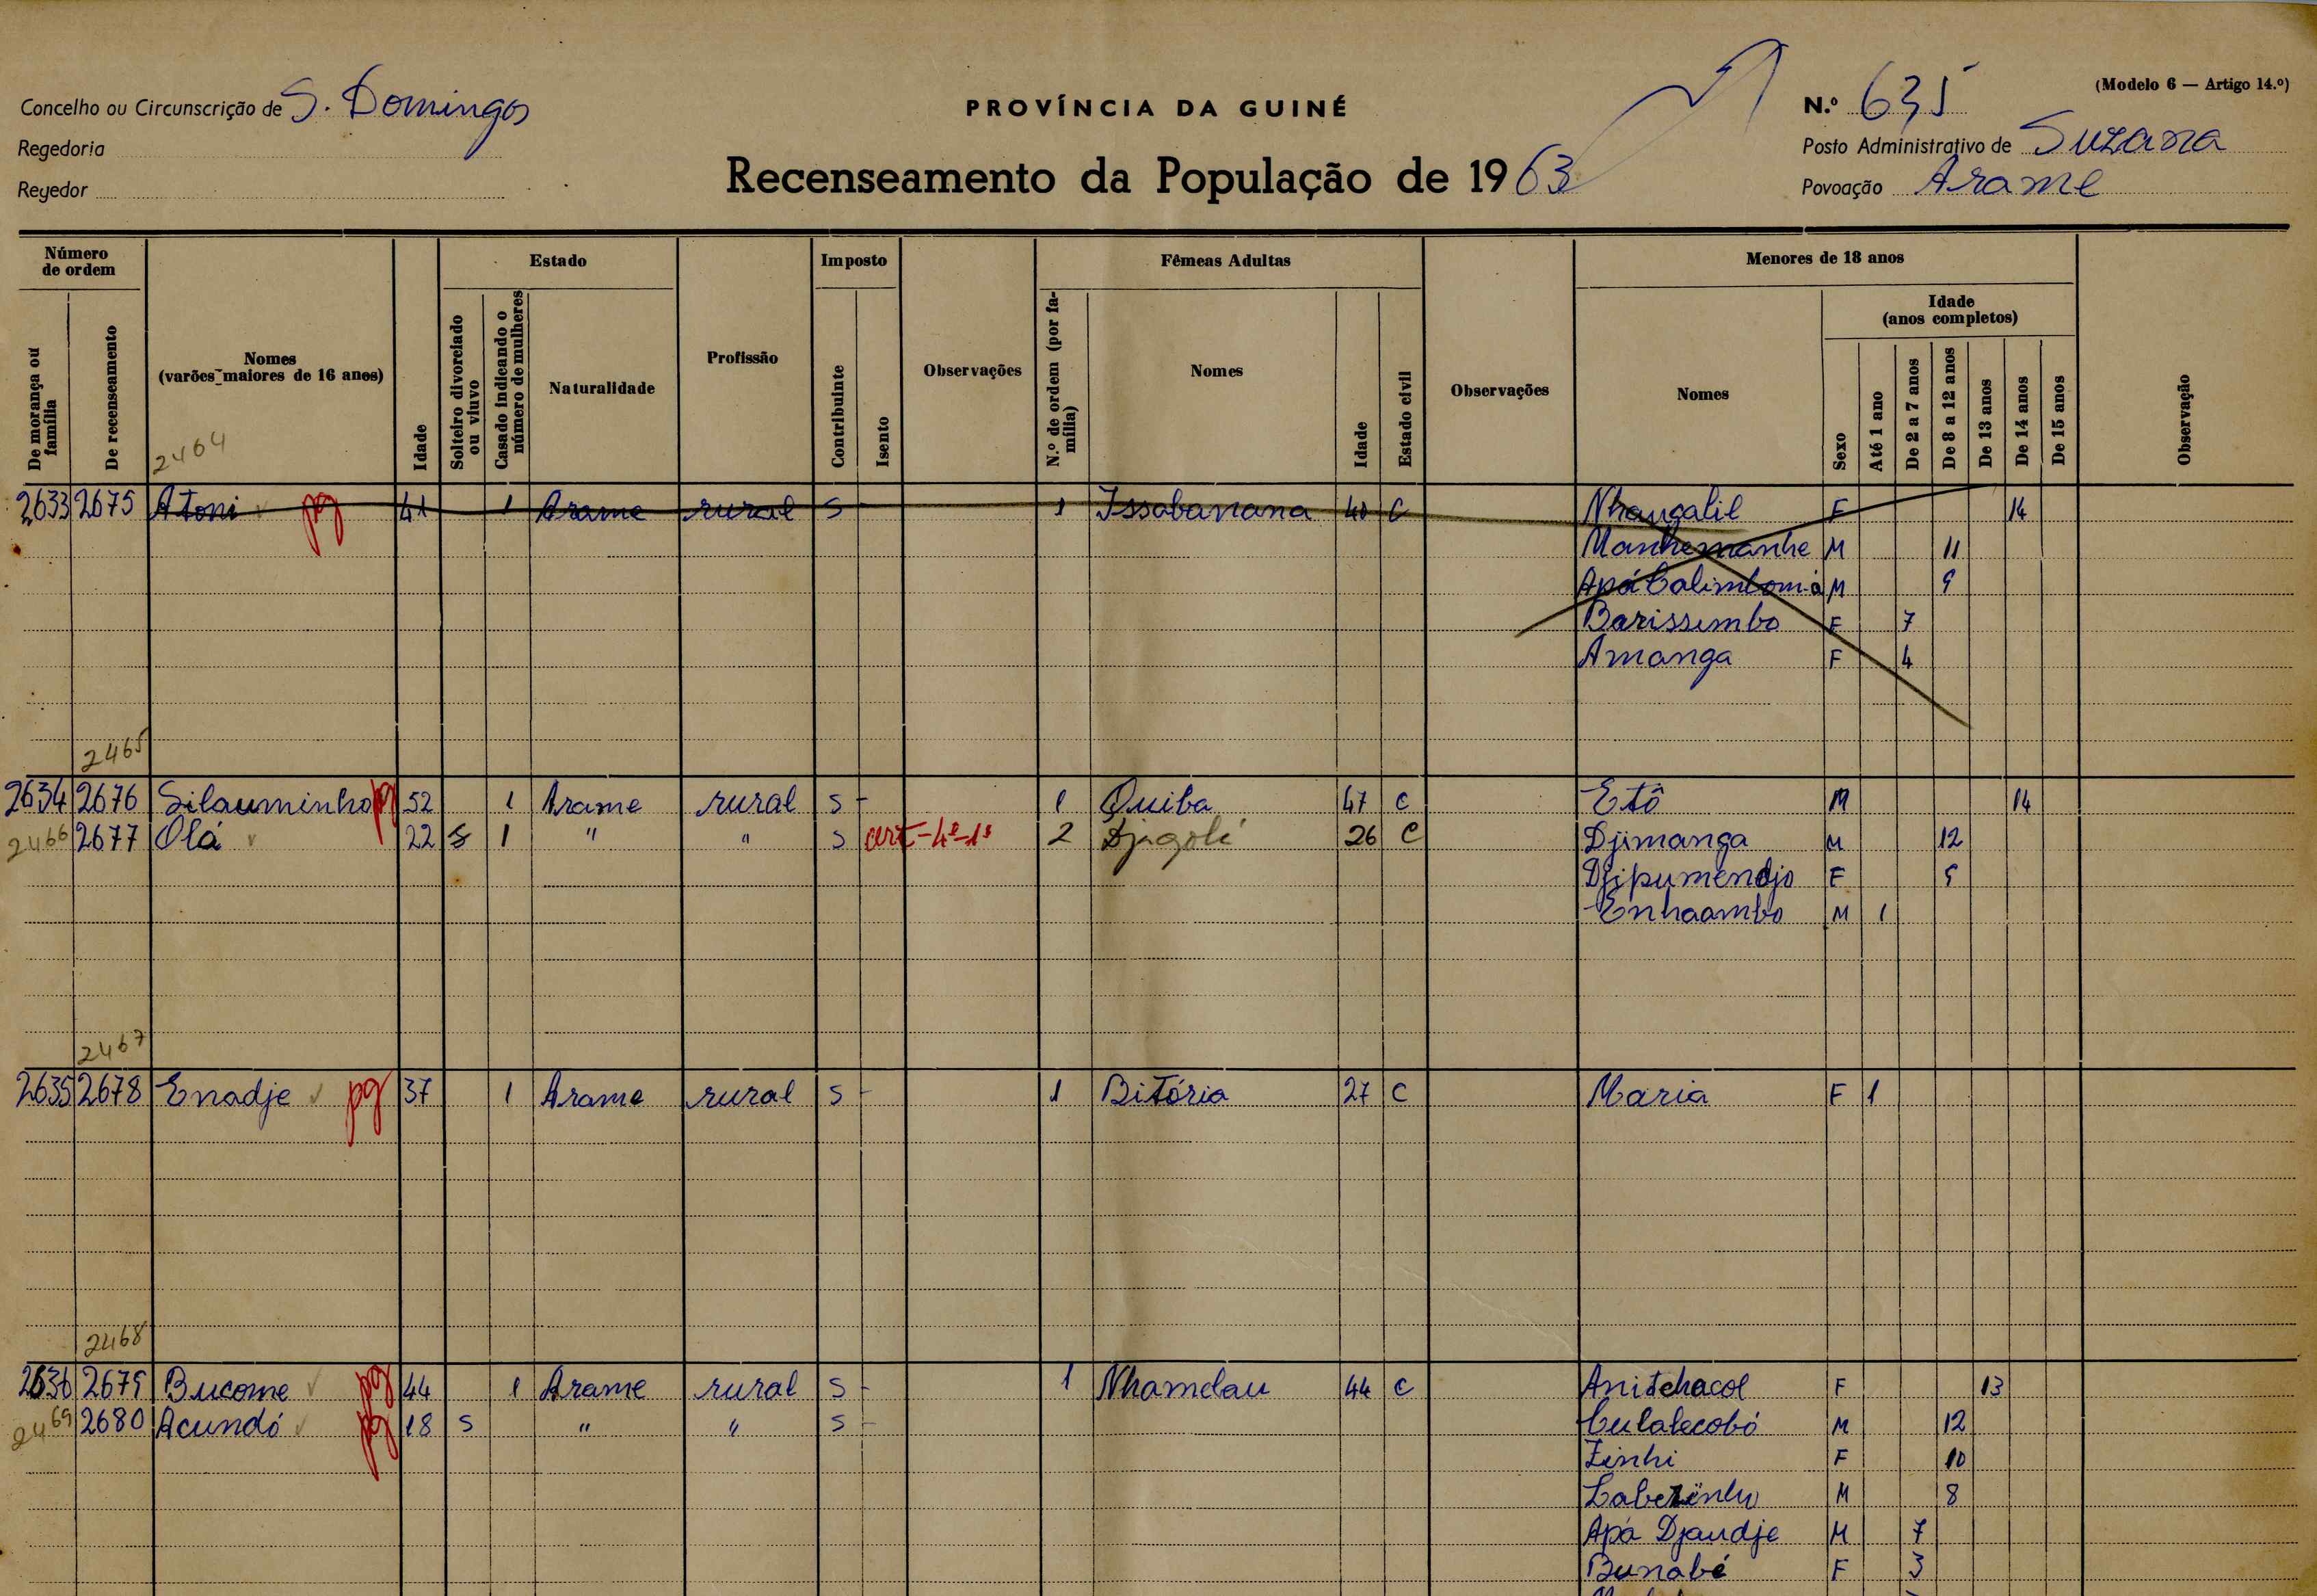 (Modelo 6 — Artigo 14.º)
Concelho ou Circunscrição de S. Domingos
PROVÍNCIA DA GUINÉ
N.º 635
Regedoria
Posto Administrativo de Suzana
Regedor
Recenseamento da População de 1963
Povoação Arame
Número de ordem
Estado
Imposto
Fêmeas Adultas
Menores de 18 anos
De morança ou família
De recenseamento
Nomes (varões maiores de 16 anos)
Idade
Solteiro divorciado ou viuvo
Casado indicando o número de mulheres
Naturalidade
Profissão
Contribuinte
Isento
Observações
N.º de ordem (por família)
Nomes
Idade
Estado civil
Observações
Nomes
Sexo
Idade (anos completos)
Até 1 ano
De 2 a 7 anos
De 8 a 12 anos
De 13 anos
De 14 anos
De 15 anos
Observação
2464
2633 2675 Atoni pg 41 1 Arame rural S - 1 Issabanana 40 C Nhangalil F 14
Manhemanhe M 11
Apá Calimbomá M 9
Barissumbo F 7
Amanga F 4
2465
2634 2676 Silauminho pg 52 1 Arame rural S - 1 Quiba 47 C Etô M 14
2466 2677 Olá 22 S 1 " " S art-4º-1º 2 Djagolé 26 C Djimanga M 12
Djipumendjo F 9
Enhaambo M 1
2467
2635 2678 Enadje pg 37 1 Arame rural S - 1 Bitória 27 C Maria F 1
2468
2636 2679 Bucome pg 44 1 Arame rural S - 1 Nhamelau 44 C Anitchacol F 13
2469 2680 Acundó pg 18 S " " S - Culalecobó M 12
Zinhi F 10
M 8
Apá Djaudje M 7
Bunabé F 3